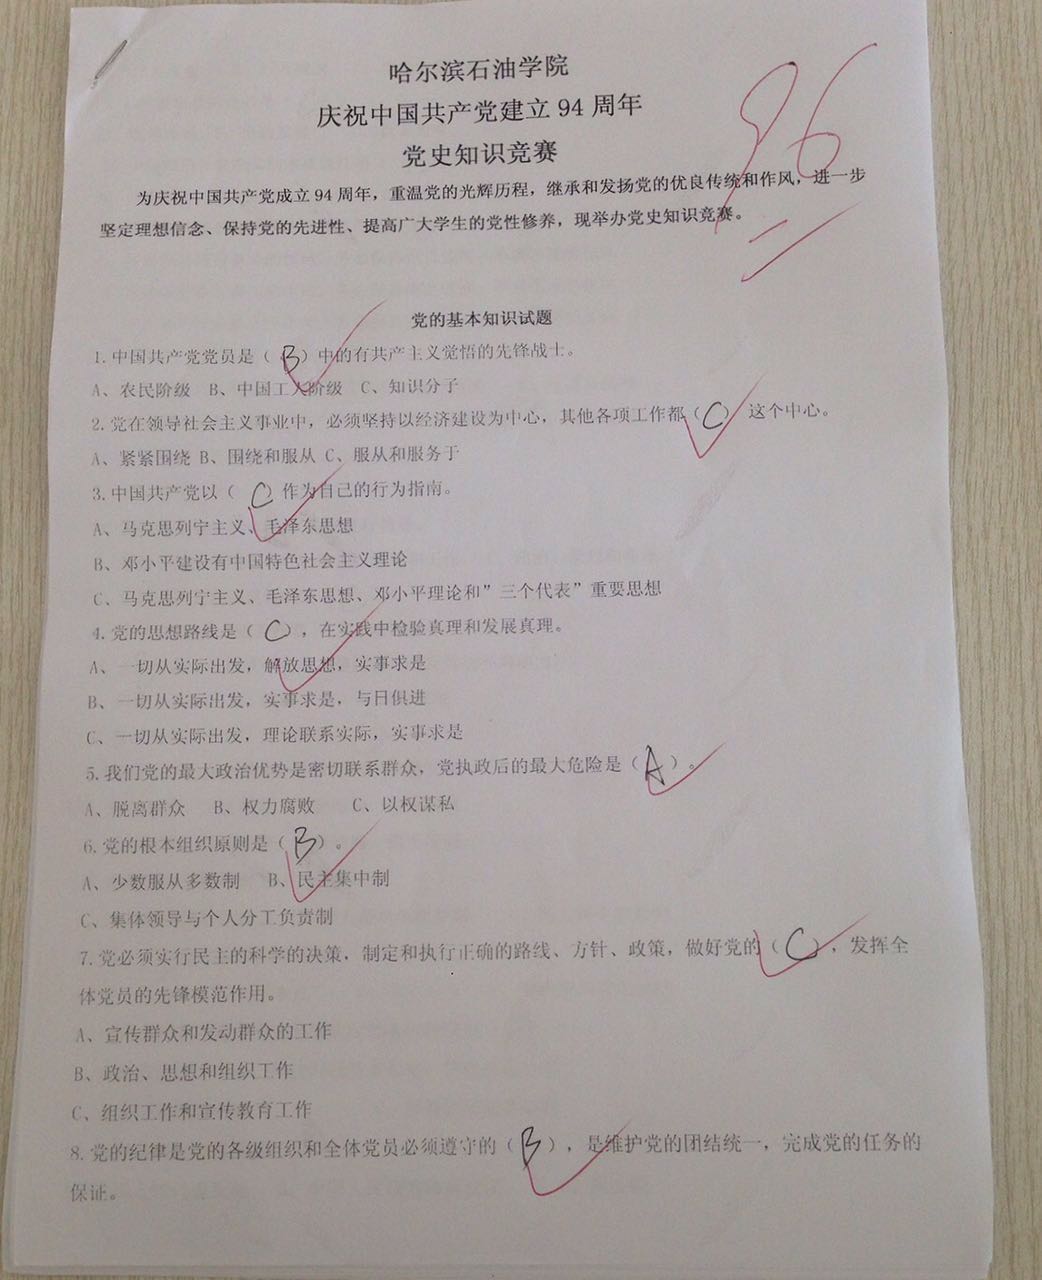 哈尔滨石油学院
庆祝中国共产党建立 94 周年
党史知识竞赛
96
为庆祝中国共产党成立 94 周年，重温党的光辉历程，继承和发扬党的优良传统和作风，进一步
坚定理想信念、保持党的先进性、提高广大学生的党性修养，现举办党史知识竞赛。
党的基本知识试题
1.中国共产党党员是（ B ）中的有共产主义觉悟的先锋战士。
A、农民阶级 B、中国工人阶级 C、知识分子
2.党在领导社会主义事业中，必须坚持以经济建设为中心，其他各项工作都（ C ） 这个中心。
A、紧紧围绕 B、围绕和服从 C、服从和服务于
3.中国共产党以（ C ）作为自己的行为指南。
A、马克思列宁主义、毛泽东思想
B、邓小平建设有中国特色社会主义理论
C、马克思列宁主义、毛泽东思想、邓小平理论和”三个代表”重要思想
4.党的思想路线是（ C ），在实践中检验真理和发展真理。
A、一切从实际出发，解放思想，实事求是
B、一切从实际出发，实事求是，与日俱进
C、一切从实际出发，理论联系实际，实事求是
5.我们党的最大政治优势是密切联系群众，党执政后的最大危险是（ A ）。
A、脱离群众 B、权力腐败 C、以权谋私
6.党的根本组织原则是（ B ）。
A、少数服从多数制 B、民主集中制
C、集体领导与个人分工负责制
7.党必须实行民主的科学的决策，制定和执行正确的路线、方针、政策，做好党的（ C ），发挥全
体党员的先锋模范作用。
A、宣传群众和发动群众的工作
B、政治、思想和组织工作
C、组织工作和宣传教育工作
8.党的纪律是党的各级组织和全体党员必须遵守的（ B ），是维护党的团结统一，完成党的任务的
保证。